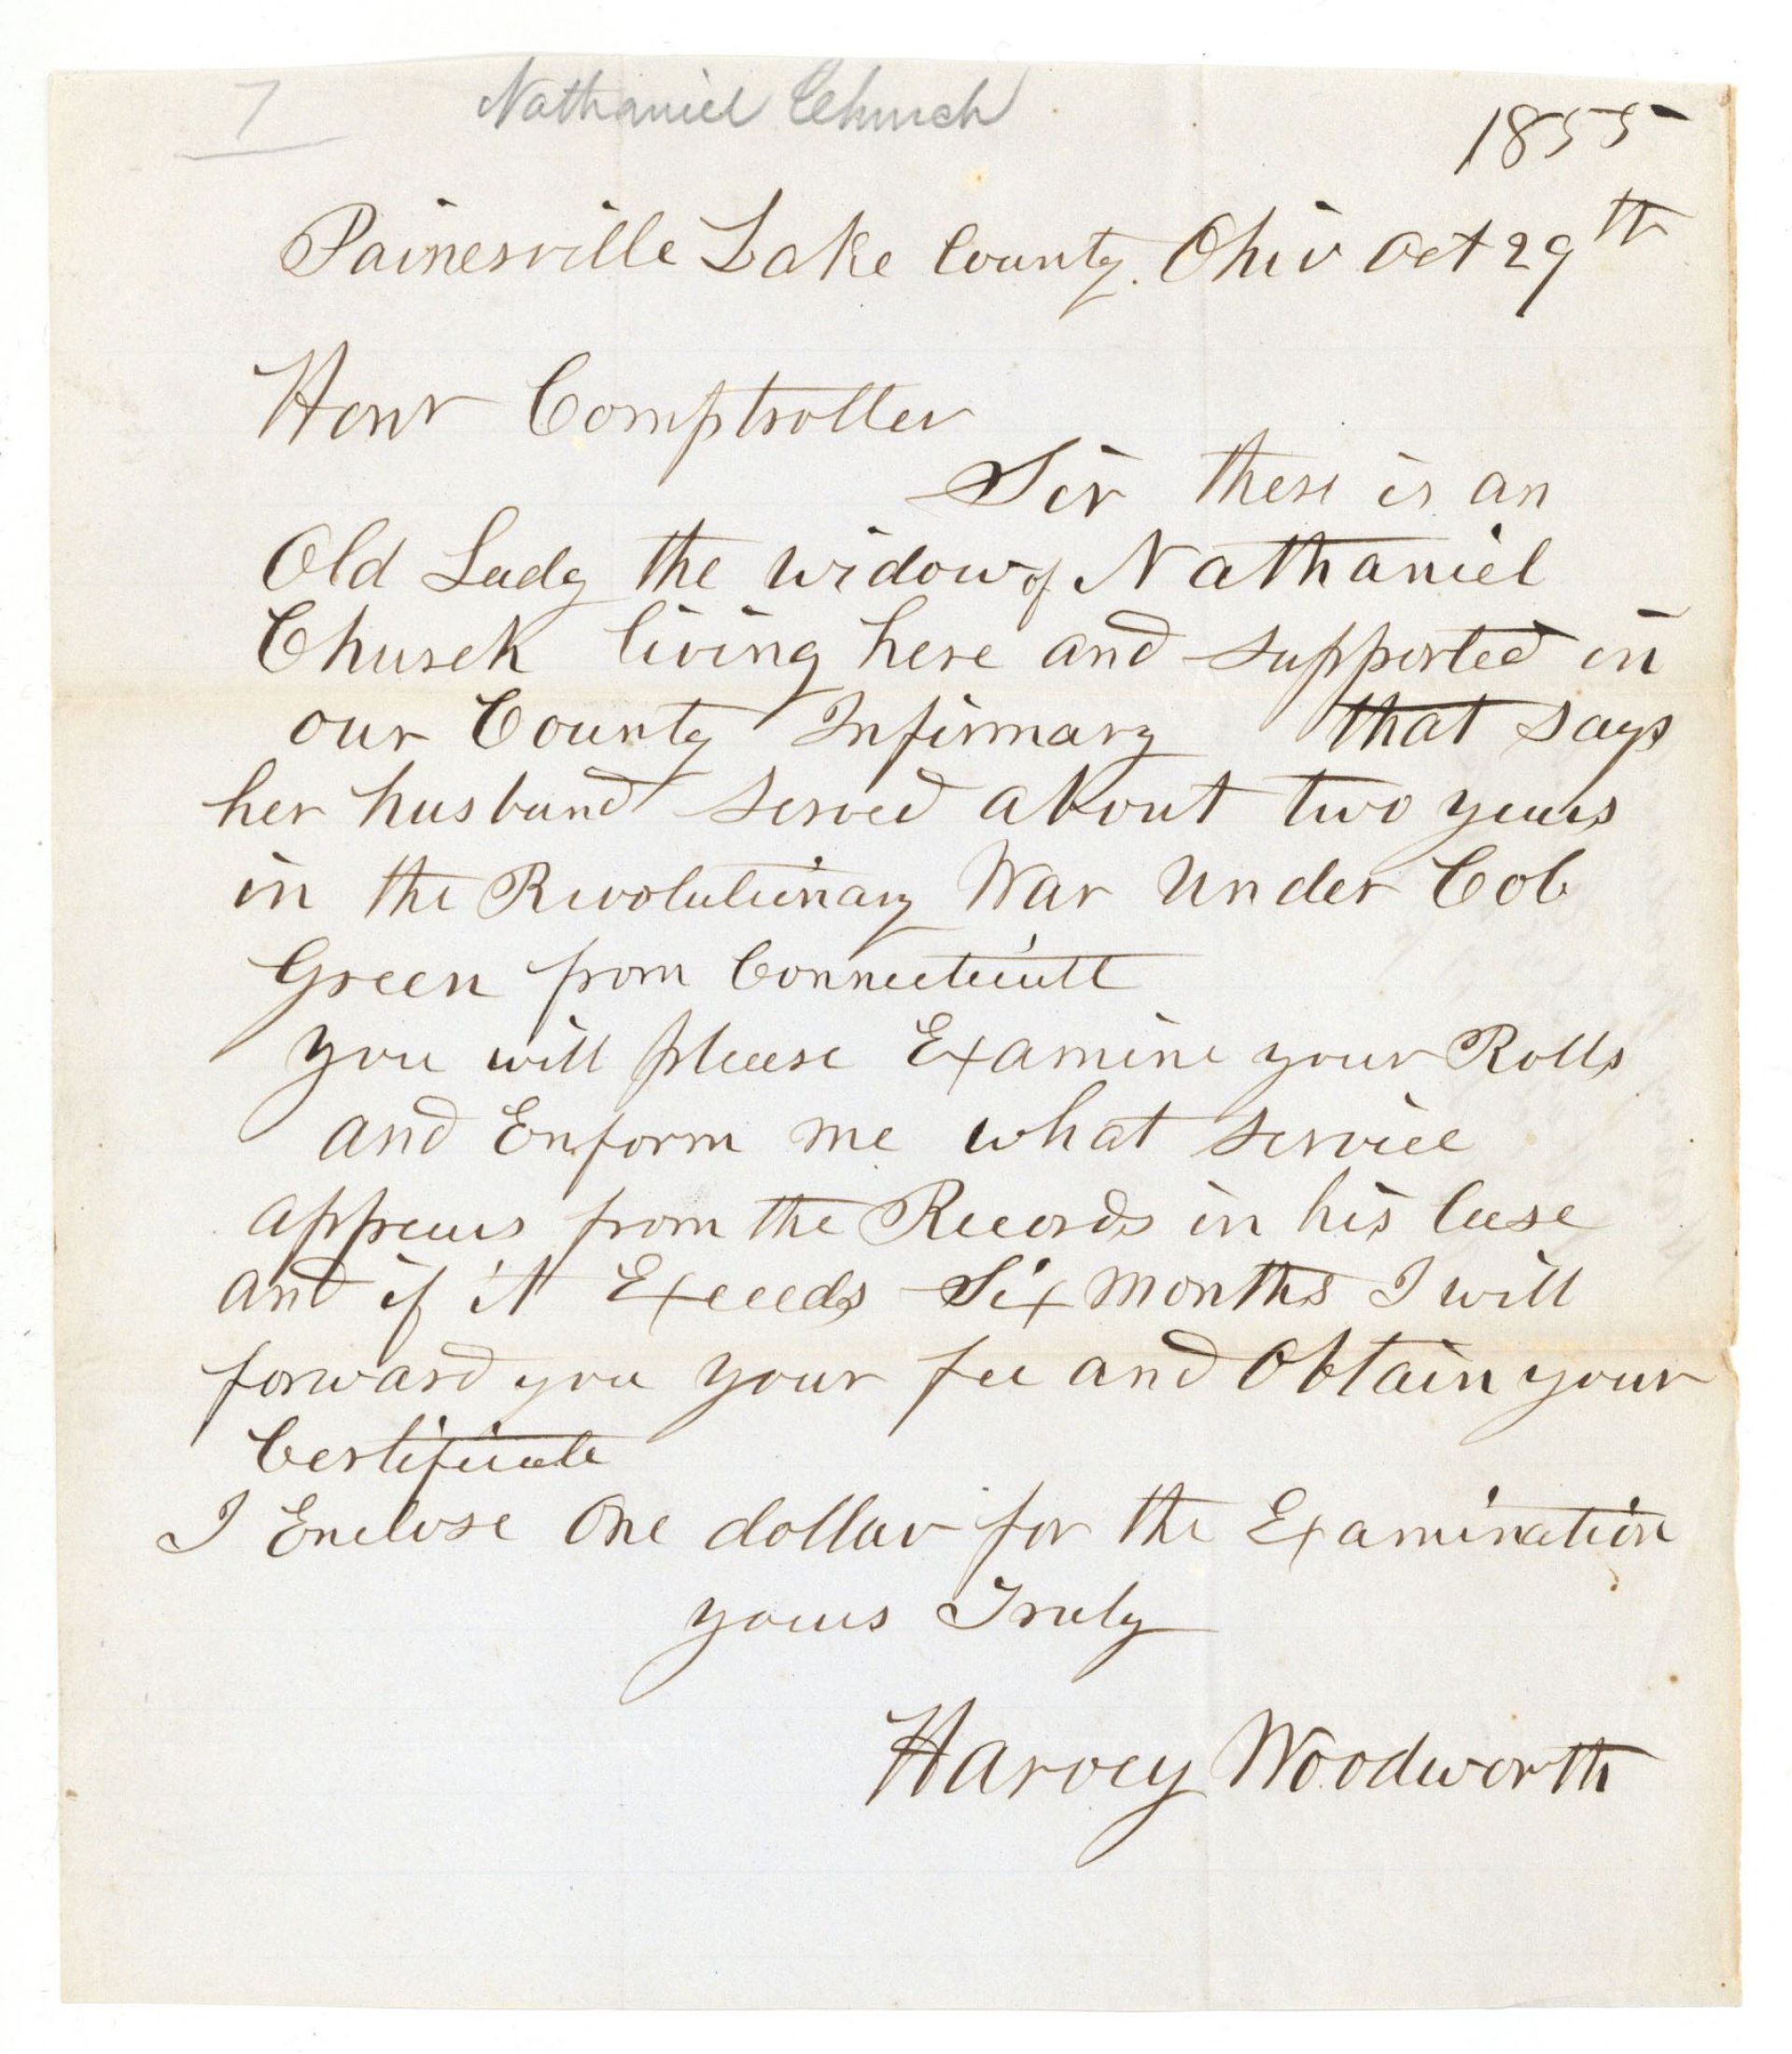 7 Nathaniel Church
1855
Painesville Lake County. Ohio Oct 29th
Honr Comptroller
Sir there is an
Old Lady the widow of Nathaniel
Church living here and supported in
our County Infirmary that says
her husband served about two years
in the Revolutionary War Under Col
Green from Connecticutt
you will please Examine your Rolls
and Enform me what service
appears from the Records in his Case
and if it Exceeds Six months I will
forward you your fee and Obtain your
Certificate
I Enclose One dollar for the Examination
yours Truly
Harvey Woodworth